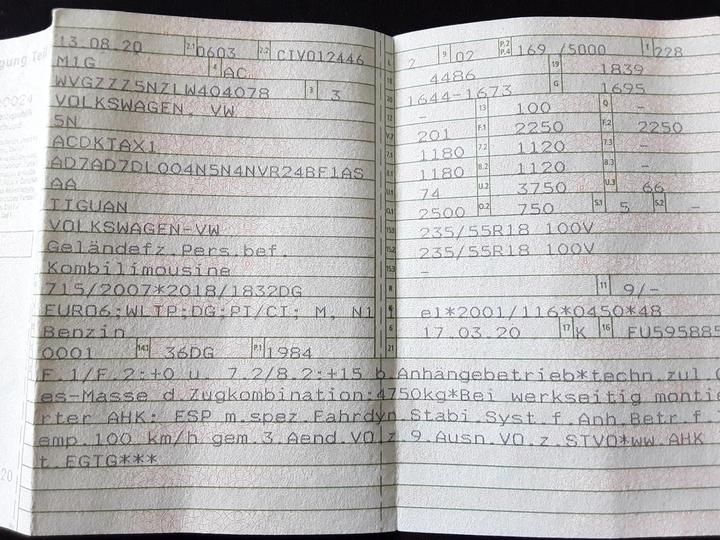 gung Teil
13.08.20 2.1 0603 2.2 CIV012446
M1G
4 AC
WVGZZZ5NZLW404078 3 3
VOLKSWAGEN, VW
5N
ACDKTAX1
AD7AD7DL004N5N4NVR24BF1AS
AA
TIGUAN
VOLKSWAGEN-VW
Geländefz.Pers.bef.
Kombilimousine
715/2007*2018/1832DG
EURO6;WLTP;DG;PI/CI; M, N1 I
Benzin
0001 14.1 36DG P.1 1984
L 2 9 02 P.2 P.4 169 /5000 T 228
18 4486 19 1839
20 1644-1673 G 1695
12 - 13 100 Q -
V.7 201 F.1 2250 F.2 2250
7.1 1180 7.2 1120 7.3 -
8.1 1180 8.2 1120 8.3 -
U.1 74 U.2 3750 U.3 66
O.1 2500 O.2 750 S.1 5 S.2 -
15.1 235/55R18 100V
15.2 235/55R18 100V
15.3 -
R 11 9/-
K e1*2001/116*0450*48
6 17.03.20 17 K 16 FU595885
21
F.1/F.2:+0 u. 7.2/8.2:+15 b.Anhängebetrieb*techn.zul
es-Masse d.Zugkombination:4750kg*Bei werkseitig monti
rter AHK: ESP m.spez.Fahrdyn.Stabi.Syst.f.Anh.Betr.f.
emp.100 km/h gem.3.Aend.VO.z.9.Ausn.VO.z.STVO*ww.AHK
t.EGTG***
20